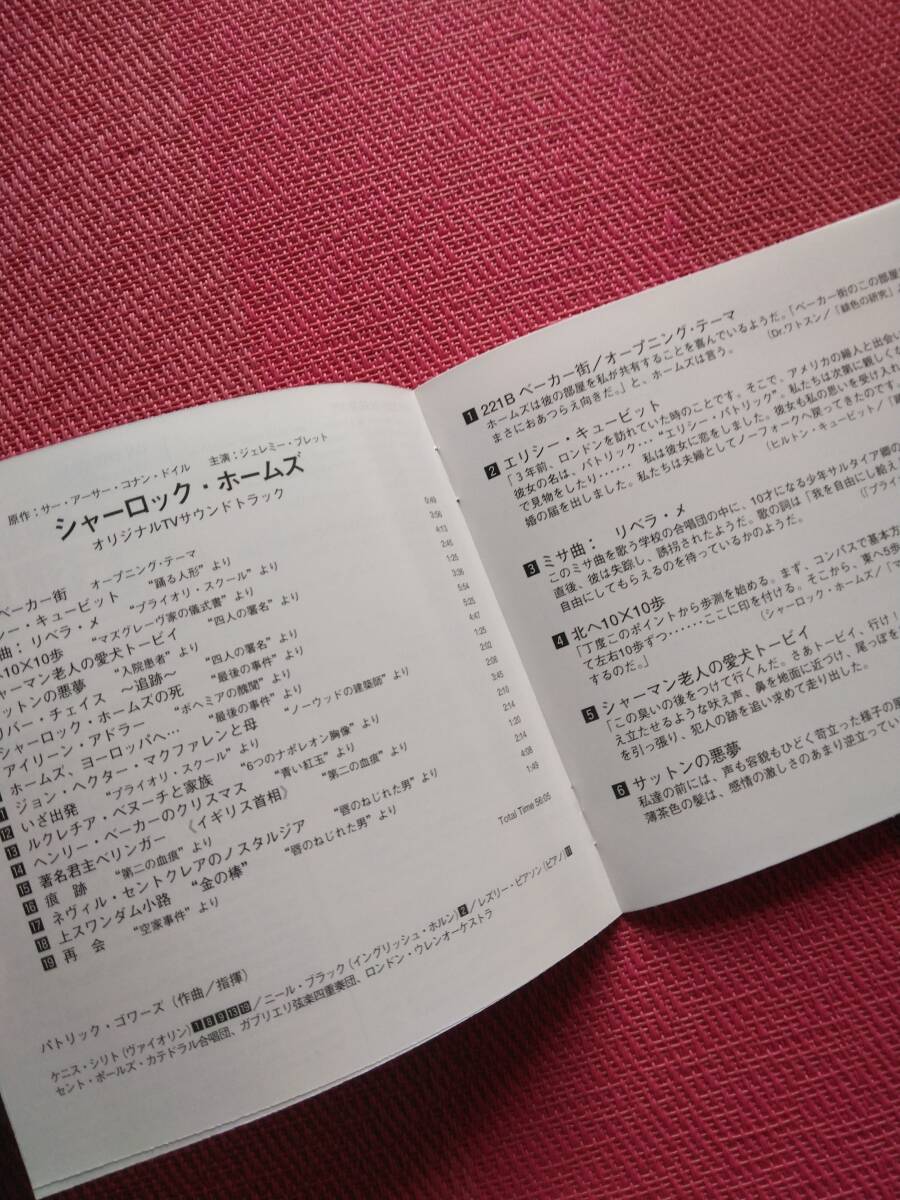 原作：サー・アーサー・コナン・ドイル　主演：ジェレミー・ブレット
シャーロック・ホームズ
オリジナルTVサウンドトラック
ベーカー街　オープニング・テーマ 0:49
シー・キュービット　“踊る人形”より 3:56
曲：リベラ・メ　“プライオリ・スクール”より 4:13
へ10×10歩　“マスグレーヴ家の儀式書”より 2:45
ャーマン老人の愛犬トービイ　“四人の署名”より 1:25
ットンの悪夢　“入院患者”より 3:36
リバー・チェイス　～追跡～　“四人の署名”より 5:54
シャーロック・ホームズの死　“最後の事件”より 5:25
アイリーン・アドラー　“ボヘミアの醜聞”より 4:47
ホームズ、ヨーロッパへ…　“最後の事件”より 1:25
ジョン・ヘクター・マクファレンと母　“ノーウッドの建築師”より 2:02
12 いざ出発　“プライオリ・スクール”より 2:08
13 ルクレチア・ベヌーチと家族　“6つのナポレオン胸像”より 3:45
14 ヘンリー・ベーカーのクリスマス　“青い紅玉”より 2:10
15 著名君主ベリンガー　《イギリス首相》　“第二の血痕”より 2:14
16 痕　跡　“第二の血痕”より 1:20
17 ネヴィル・セントクレアのノスタルジア　“唇のねじれた男”より 2:14
18 上スワンダム小路　“金の棒”　“唇のねじれた男”より 4:08
19 再　会　“空家事件”より 1:49
Total Time 56:05
パトリック・ゴワーズ（作曲／指揮）
ケニス・シリト（ヴァイオリン）1 8 9 13 19／ニール・ブラック（イングリッシュ・ホルン）2／レズリー・ピアソン（ピアノ）11
セント・ポールズ・カテドラル合唱団、ガブリエリ弦楽四重奏団、ロンドン・ウレンオーケストラ
1 221B ベーカー街／オープニング・テーマ
ホームズは彼の部屋を私が共有することを喜んでいるようだ。「ベーカー街のこの部屋
まさにおあつらえ向きだ。」と、ホームズは言う。
（Dr.ワトスン／「緋色の研究」
2 エリシー・キュービット
「３年前、ロンドンを訪れていた時のことです。そこで、アメリカの婦人と出会い
彼女の名は、パトリック…“エリシー・パトリック”。私たちは次第に親しくな
で見物をしたり……　私は彼女に恋をしました。彼女も私の思いを受け入れ
婚の届を出しました。私たちは夫婦としてノーフォークへ戻ってきたのです。
（ヒルトン・キュービット／「踊
3 ミサ曲：　リベラ・メ
このミサ曲を歌う学校の合唱団の中に、10才になる少年サルタイア卿の
直後、彼は失踪し、誘拐されたようだ。歌の詞は「我を自由にし給え
自由にしてもらえるのを待っているかのようだ。
（「プライ
4 北へ10×10歩
「丁度このポイントから歩測を始める。まず、コンパスで基本方
て左右10歩ずつ……ここに印を付ける。そこから、東へ5歩
するのだ。」
（シャーロック・ホームズ／「マ
5 シャーマン老人の愛犬トービイ
「この臭いの後をつけて行くんだ。さあトービイ、行け！
え立たせるような吠え声、鼻を地面に近づけ、尾っぽを
を引っ張り、犯人の跡を追い求めて走り出した。
6 サットンの悪夢
私達の前には、声も容貌もひどく苛立った様子の風
薄茶色の髪は、感情の激しさのあまり逆立ってい